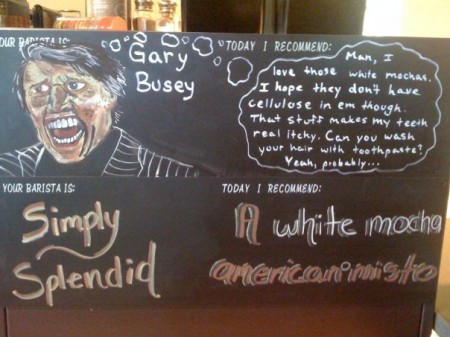 YOUR BARISTA IS:
Gary
Busey
TODAY I RECOMMEND:
Man, I
love those white mochas.
I hope they don't have
cellulose in em though.
That stuff makes my teeth
real itchy. Can you wash
your hair with toothpaste?
Yeah, probably...
YOUR BARISTA IS:
Simply
Splendid
TODAY I RECOMMEND:
A white mocha
americanimisto